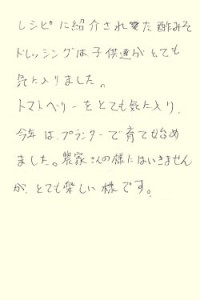 レシピに紹介されて頂いた酢みそ
ドレッシングは子供達がとても
気に入りました。
トマトベリーをとても気に入り、
今年は、プランターで育て始め
ました。農家さんの様にはいきません
が、とても楽しい様です。